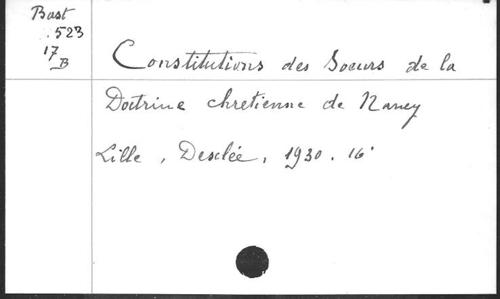 Bast
.523
17
B
Constitutions des Soeurs de la
Doctrine chretienne de Nancy
Lille, Desclée, 1930. 16°